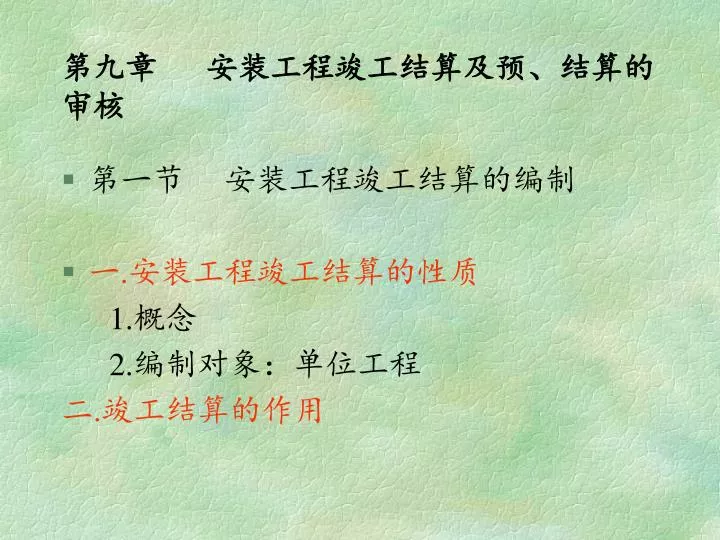 第九章 安装工程竣工结算及预、结算的
审核
第一节 安装工程竣工结算的编制
一.安装工程竣工结算的性质
1.概念
2.编制对象：单位工程
二.竣工结算的作用